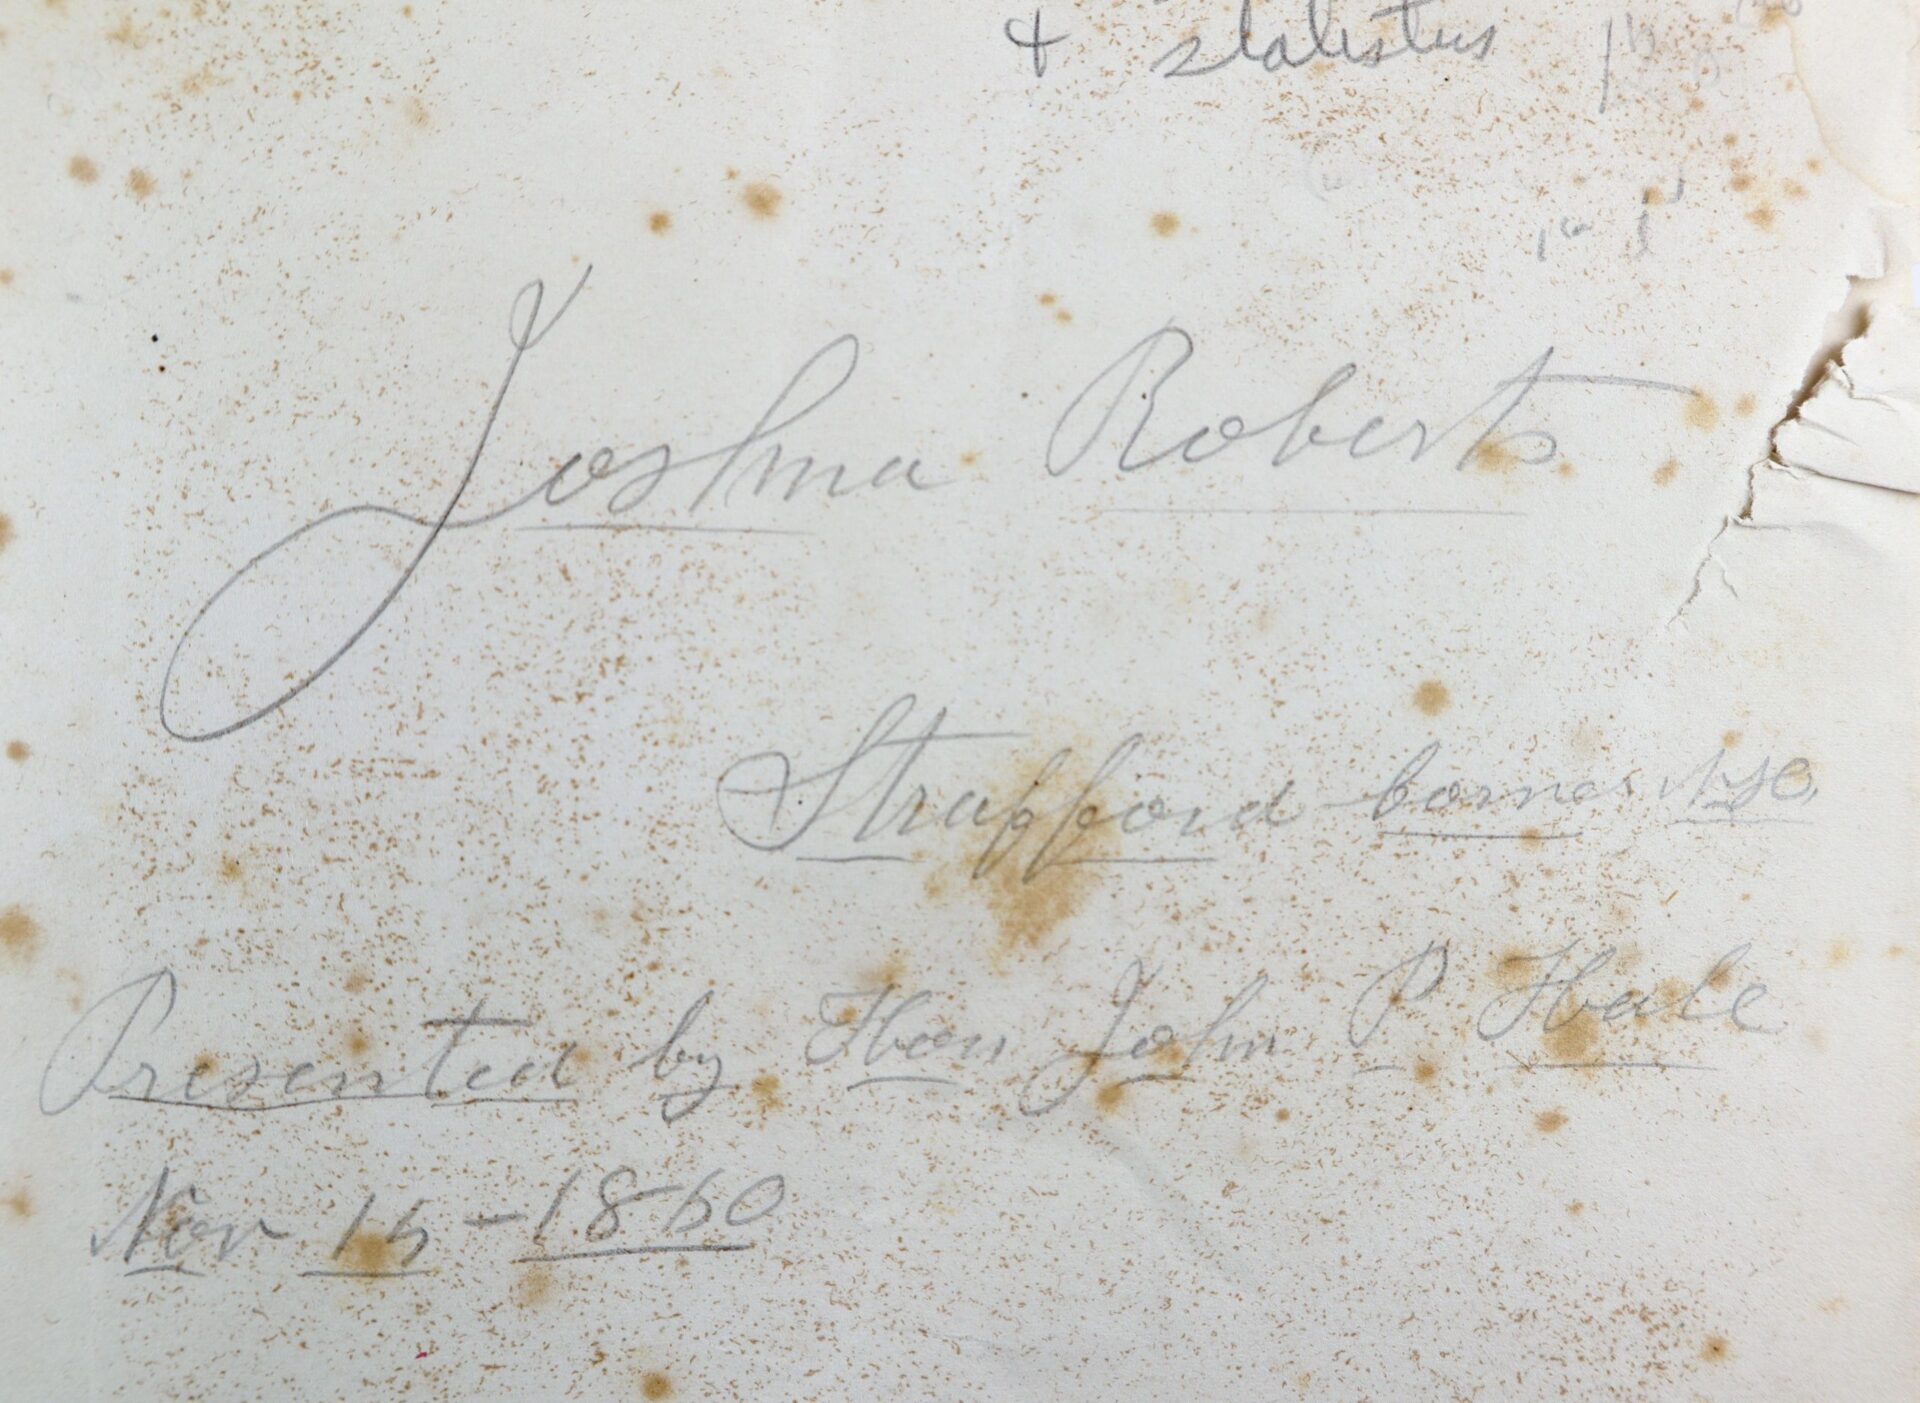 & statistics
Joshua Roberts
Strafford corner N.H.
Presented by Hon John P Hale
Nov 15 - 1860